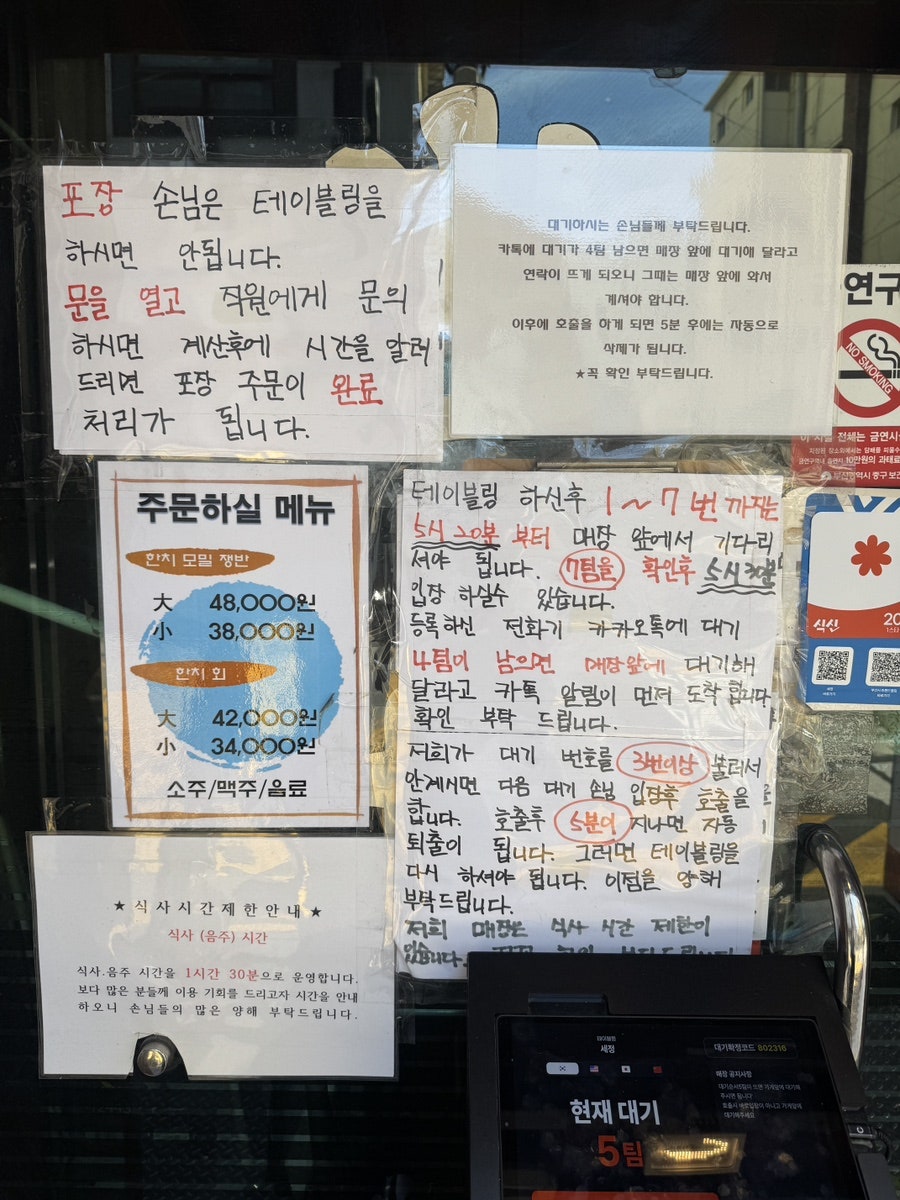 포장 손님은 테이블링을
하시면 안됩니다.
문을 열고 직원에게 문의
하시면 계산후에 시간을 알려
드리면 포장 주문이 완료
처리가 됩니다.
대기하시는 손님들께 부탁드립니다.
카톡에 대기가 4팀 남으면 매장 앞에 대기해 달라고
연락이 뜨게 되오니 그때는 매장 앞에 와서
계셔야 합니다.
이후에 호출을 하게 되면 5분 후에는 자동으로
삭제가 됩니다.
★꼭 확인 부탁드립니다.
주문하실 메뉴
한치 모밀 쟁반
大 48,000원
小 38,000원
한치 회
大 42,000원
小 34,000원
소주/맥주/음료
테이블링 하신후 1~7번 까지는
5시 20분 부터 매장 앞에서 기다리
셔야 됩니다. 7팀을 확인후 5시30분
입장 하실수 있습니다.
등록하신 전화기 카카오톡에 대기
4팀이 남으면 매장앞에 대기해
달라고 카톡 알림이 먼저 도착 합니다
확인 부탁 드립니다.
저희가 대기 번호를 3번이상 불러서
안계시면 다음 대기 손님 입장후 호출을
합니다. 호출후 5분이 지나면 자동
퇴출이 됩니다. 그러면 테이블링을
다시 하셔야 됩니다. 이점을 양해
부탁드립니다.
저희 매장은 식사 시간 제한이
있습니다.
★ 식사시간제한안내 ★
식사 (음주) 시간
식사.음주 시간을 1시간 30분으로 운영합니다.
보다 많은 분들께 이용 기회를 드리고자 시간을 안내
하오니 손님들의 많은 양해 부탁드립니다.
연구
NO SMOKING
이 시설 전체는 금연시
10만원의 과태료
부산광역시 중구 보건
식신
20
테이블링
세정
대기확정코드 802316
매장 공지사항
현재 대기
5팀